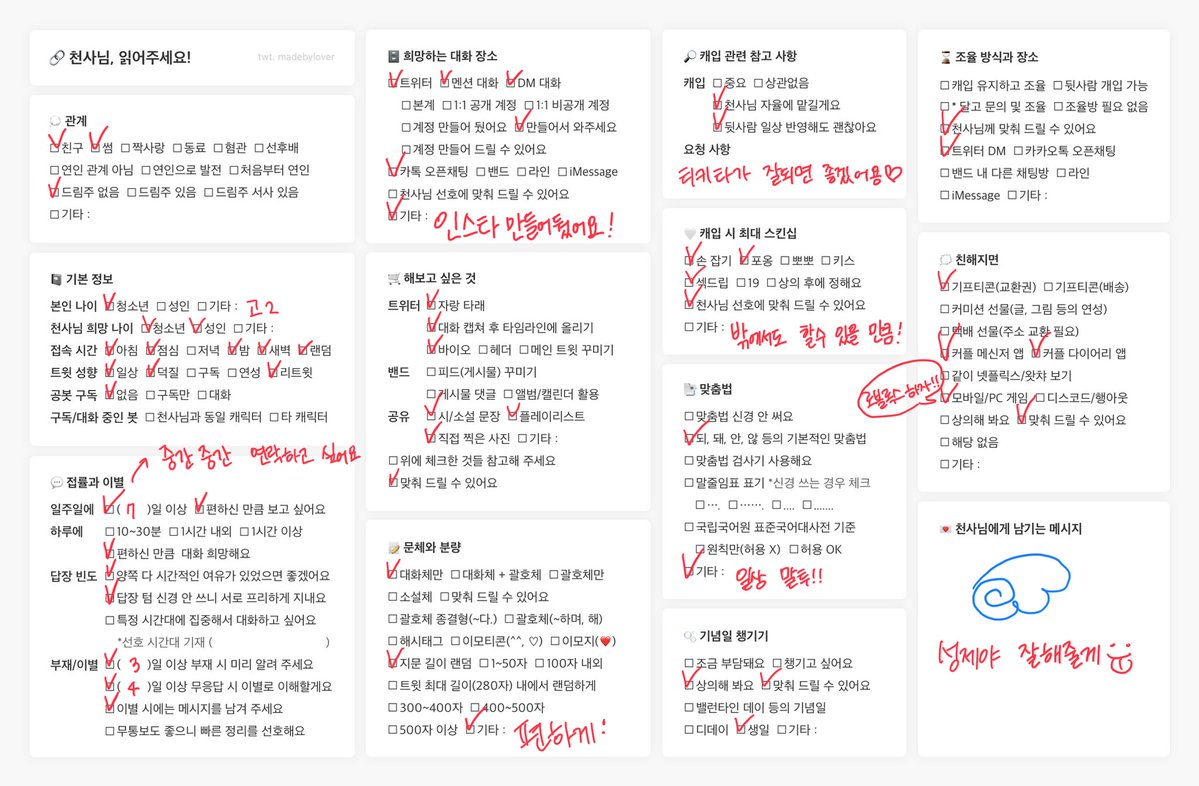 🔗 천사님, 읽어주세요!
twt. madebylover
💭 관계
☑친구 ☑썸 ☐짝사랑 ☐동료 ☐혐관 ☐선후배
☐연인 관계 아님 ☐연인으로 발전 ☐처음부터 연인
☑드림주 없음 ☐드림주 있음 ☐드림주 서사 있음
☐기타 :
기본 정보
본인 나이 ☑청소년 ☐성인 ☐기타 : 고2
천사님 희망 나이 ☑청소년 ☑성인 ☐기타 :
접속 시간 ☑아침 ☑점심 ☐저녁 ☑밤 ☑새벽 ☑랜덤
트윗 성향 ☑일상 ☑덕질 ☐구독 ☐연성 ☑리트윗
공봇 구독 ☑없음 ☐구독만 ☐대화
구독/대화 중인 봇 ☐천사님과 동일 캐릭터 ☐타 캐릭터
💬 접률과 이별
중간 중간 연락하고 싶어요
일주일에 ☑( 7 )일 이상 ☑편하신 만큼 보고 싶어요
하루에 ☐10~30분 ☐1시간 내외 ☐1시간 이상
☑편하신 만큼 대화 희망해요
답장 빈도 ☑양쪽 다 시간적인 여유가 있었으면 좋겠어요
☑답장 텀 신경 안 쓰니 서로 프리하게 지내요
☐특정 시간대에 집중해서 대화하고 싶어요
*선호 시간대 기재 ( )
부재/이별 ☑( 3 )일 이상 부재 시 미리 알려 주세요
☑( 4 )일 이상 무응답 시 이별로 이해할게요
☑이별 시에는 메시지를 남겨 주세요
☐무통보도 좋으니 빠른 정리를 선호해요
🗄️ 희망하는 대화 장소
☑트위터 ☑멘션 대화 ☑DM 대화
☐본계 ☐1:1 공개 계정 ☐1:1 비공개 계정
☐계정 만들어 뒀어요 ☑만들어서 와주세요
☐계정 만들어 드릴 수 있어요
☑카톡 오픈채팅 ☐밴드 ☐라인 ☐iMessage
☐천사님 선호에 맞춰 드릴 수 있어요
☑기타 : 인스타 만들어뒀어요!
🛒 해보고 싶은 것
트위터 ☑자랑 타래
☑대화 캡쳐 후 타임라인에 올리기
☑바이오 ☐헤더 ☐메인 트윗 꾸미기
밴드 ☐피드(게시물) 꾸미기
☐게시물 댓글 ☐앨범/캘린더 활용
공유 ☑시/소설 문장 ☑플레이리스트
☑직접 찍은 사진 ☐기타 :
☐위에 체크한 것들 참고해 주세요
☑맞춰 드릴 수 있어요
📝 문체와 분량
☑대화체만 ☐대화체 + 괄호체 ☐괄호체만
☐소설체 ☐맞춰 드릴 수 있어요
☐괄호체 종결형(~다.) ☐괄호체(~하며, 해)
☐해시태그 ☐이모티콘(^^, ♡) ☐이모지(❤️)
☑지문 길이 랜덤 ☐1~50자 ☐100자 내외
☐트윗 최대 길이(280자) 내에서 랜덤하게
☐300~400자 ☐400~500자
☐500자 이상 ☑기타 : 편하게!
🔎 캐입 관련 참고 사항
캐입 ☐중요 ☐상관없음
☑천사님 자율에 맡길게요
☑뒷사람 일상 반영해도 괜찮아요
요청 사항
티키타가 잘되면 좋겠어용♡
🤍 캐입 시 최대 스킨십
☑손 잡기 ☑포옹 ☐뽀뽀 ☐키스
☑섹드립 ☐19 ☐상의 후에 정해요
☑천사님 선호에 맞춰 드릴 수 있어요
☐기타 : 밖에서도 할수 있을 만큼!
맞춤법
☐맞춤법 신경 안 써요
☑되, 돼, 안, 않 등의 기본적인 맞춤법
☐맞춤법 검사기 사용해요
☐말줄임표 표기 *신경 쓰는 경우 체크
☐…. ☐……. ☐.... ☐.......
☐국립국어원 표준국어대사전 기준
☐원칙만(허용 X) ☐허용 OK
☑기타 : 일상 말투!!
기념일 챙기기
☐조금 부담돼요 ☐챙기고 싶어요
☑상의해 봐요 ☑맞춰 드릴 수 있어요
☐밸런타인 데이 등의 기념일
☐디데이 ☑생일 ☐기타 :
⌛ 조율 방식과 장소
☐캐입 유지하고 조율 ☐뒷사람 개입 가능
☐* 달고 문의 및 조율 ☐조율방 필요 없음
☑천사님께 맞춰 드릴 수 있어요
☑트위터 DM ☐카카오톡 오픈채팅
☐밴드 내 다른 채팅방 ☐라인
☐iMessage ☐기타 :
💭 친해지면
☑기프티콘(교환권) ☐기프티콘(배송)
☐커미션 선물(글, 그림 등의 연성)
☐택배 선물(주소 교환 필요)
☑커플 메신저 앱 ☑커플 다이어리 앱
☐같이 넷플릭스/왓챠 보기
로블록스 하자!!
☑모바일/PC 게임 ☐디스코드/행아웃
☐상의해 봐요 ☑맞춰 드릴 수 있어요
☐해당 없음
☐기타 :
💌 천사님에게 남기는 메시지
성제야 잘해줄게